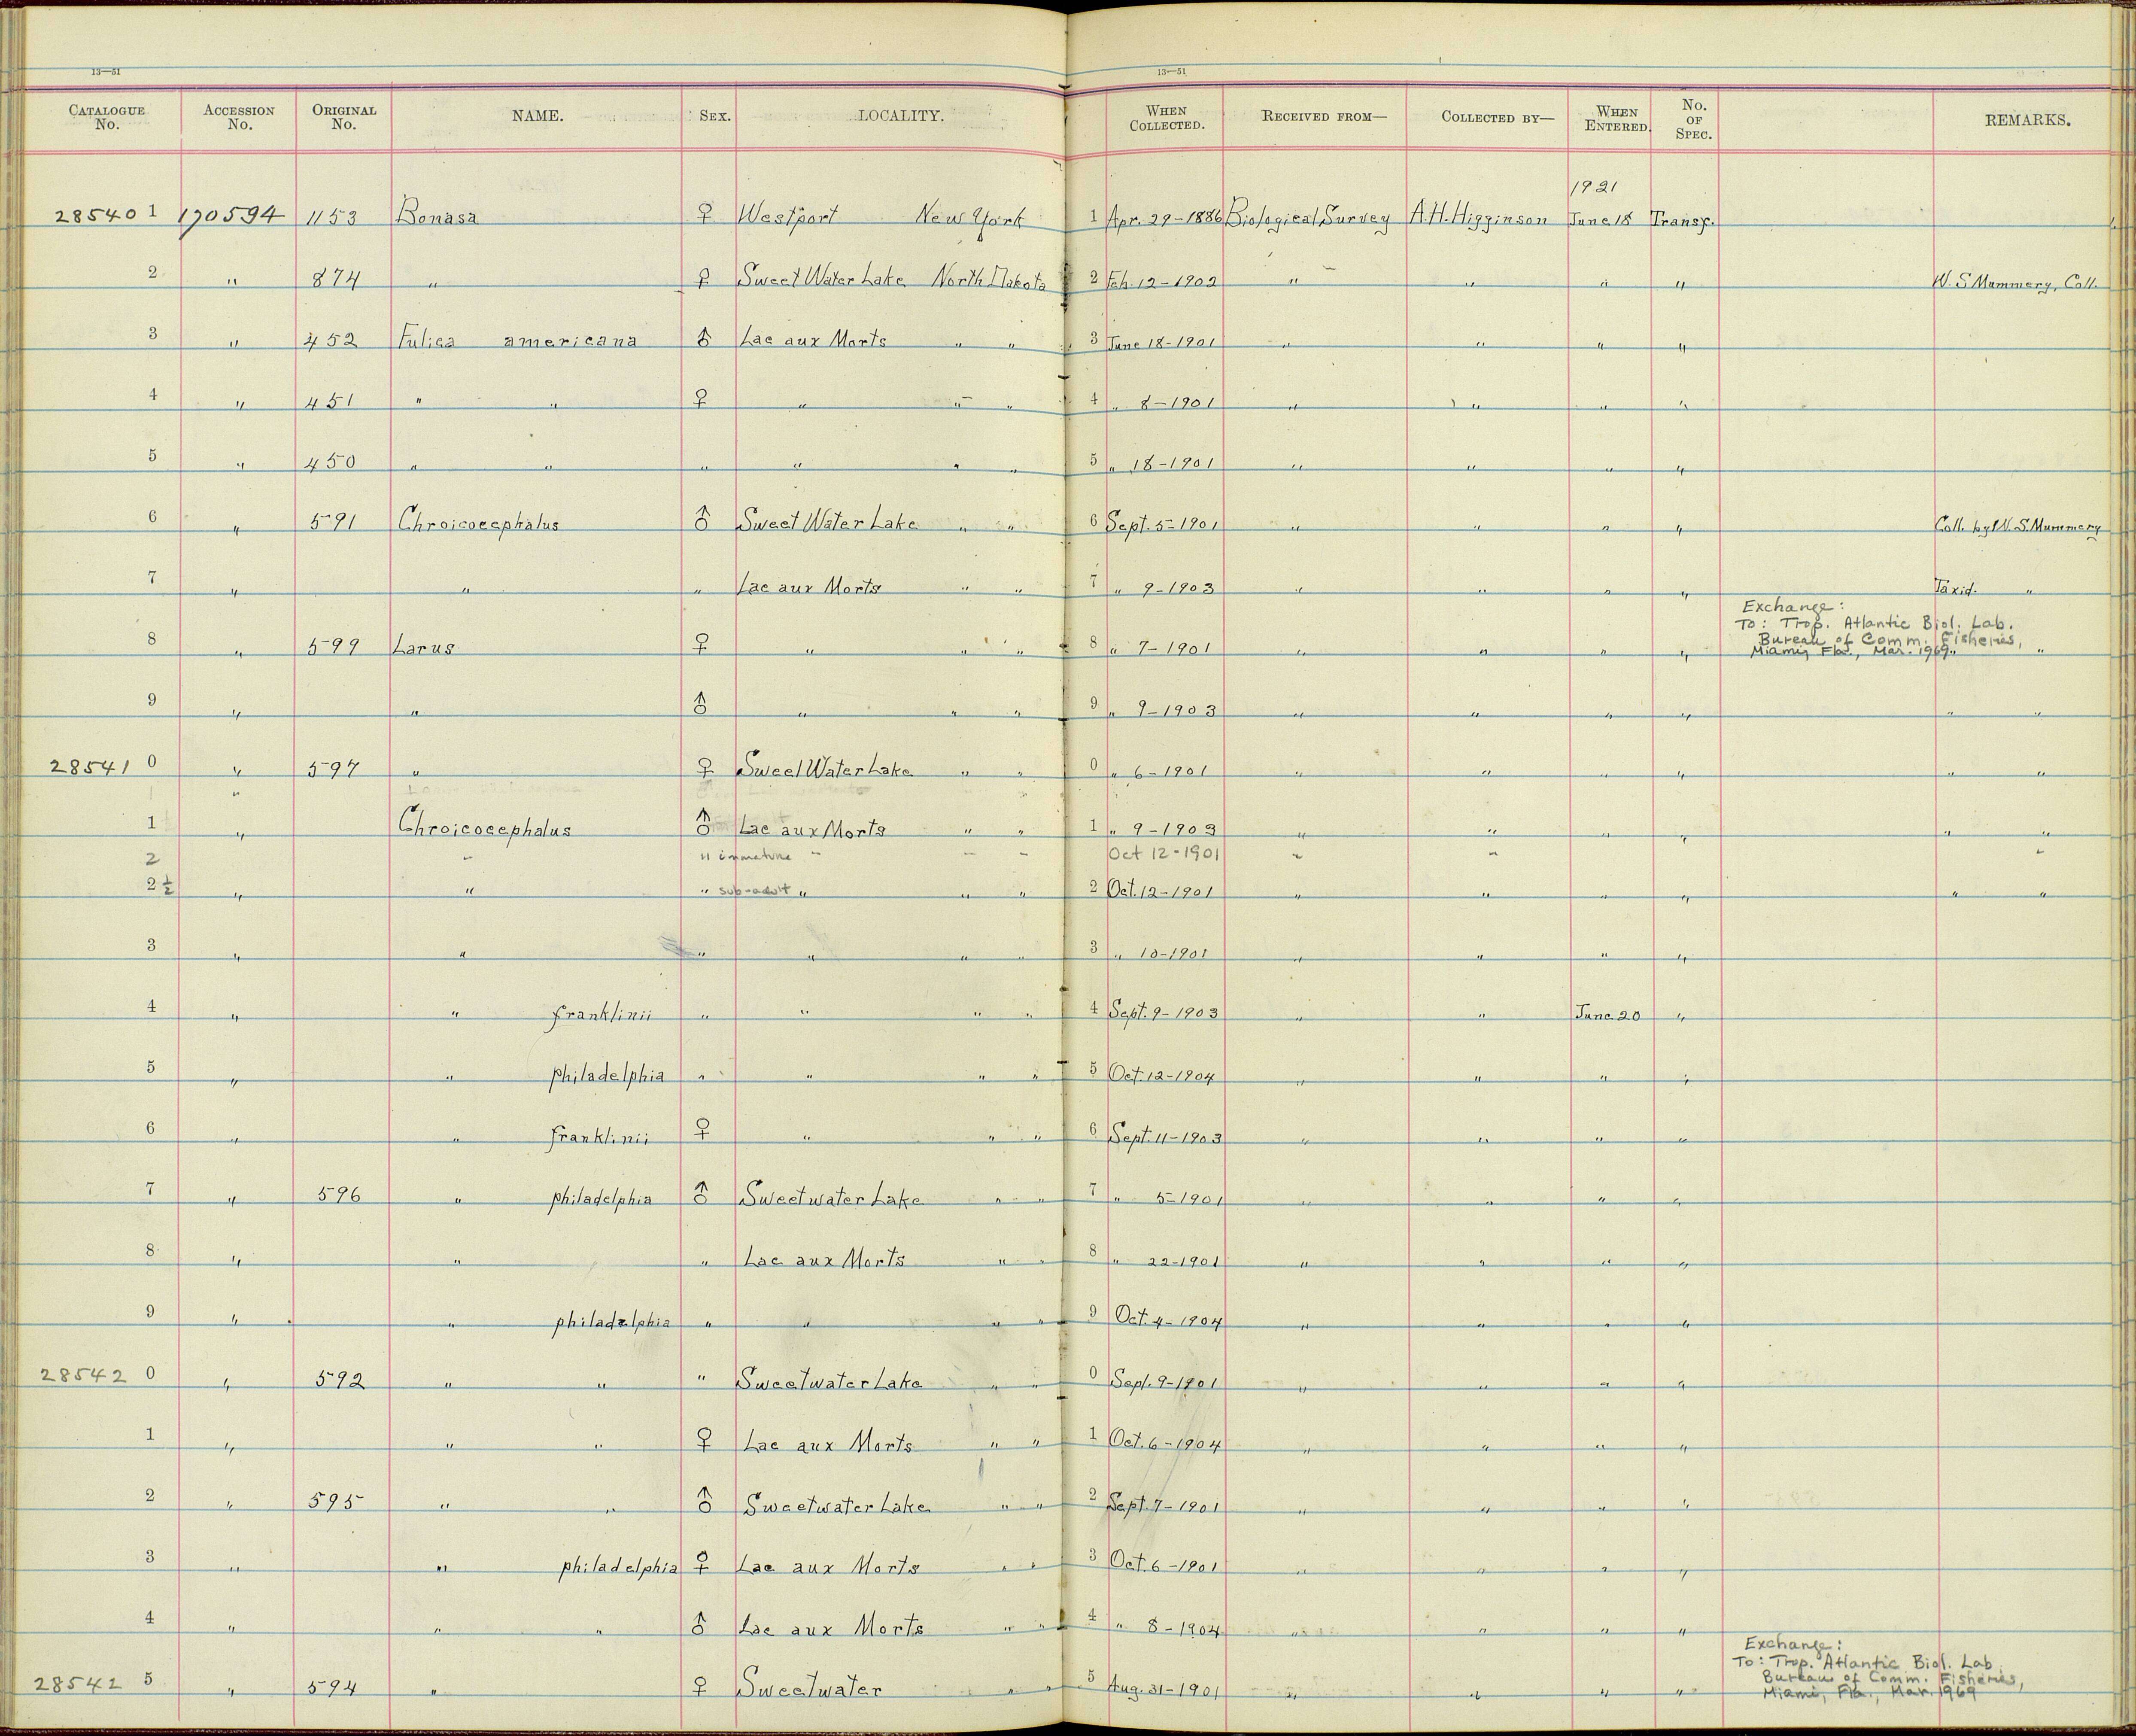 13—51 13—51
CATALOGUE No. ACCESSION No. ORIGINAL No. NAME. SEX. LOCALITY. WHEN COLLECTED. RECEIVED FROM— COLLECTED BY— WHEN ENTERED. No. OF SPEC. REMARKS.
1921
28540 1 170594 1153 Bonasa ♀ Westport New York 1 Apr. 29-1886 Biological Survey A.H. Higginson June 18 Transf.
2 " 874 " ♀ Sweet Water Lake North Dakota 2 Feb. 12-1902 " " " " W. S Mummery, Coll.
3 " 452 Fulica americana ♂ Lac aux Morts " " 3 June 18-1901 " " " "
4 " 451 " " ♀ " " " 4 " 8-1901 " " " "
5 " 450 " " " " " " 5 " 18-1901 " " " "
6 " 591 Chroicocephalus ♂ Sweet Water Lake " " 6 Sept. 5-1901 " " " " Coll. by W. S. Mummery
7 " " " Lac aux Morts " " 7 " 9-1903 " " " " Taxid. "
Exchange:
To: Trop. Atlantic Biol. Lab.
Bureau of Comm. Fisheries,
Miami, Fla., Mar. 1969
8 " 599 Larus ♀ " " " 8 " 7-1901 " " " " " "
9 " " ♂ " " " 9 " 9-1903 " " " " " "
28541 0 " 597 " ♀ Sweet Water Lake " " 0 " 6-1901 " " " " " "
1 " Chroicocephalus ♂ Lac aux Morts " " 1 " 9-1903 " " " " " "
2 " " immature " " " Oct 12-1901 " " "
2½ " " " sub-adult " " " 2 Oct. 12-1901 " " " " " "
3 " " " " " " 3 " 10-1901 " " " "
4 " " franklinii " " " " 4 Sept. 9-1903 " " June 20 "
5 " " philadelphia " " " " 5 Oct. 12-1904 " " " "
6 " " franklinii ♀ " " " 6 Sept. 11-1903 " " " "
7 " 596 " philadelphia ♂ Sweetwater Lake " " 7 " 5-1901 " " " "
8 " " " Lac aux Morts " " 8 " 22-1901 " " " "
9 " " philadelphia " " " " 9 Oct. 4-1904 " " " "
28542 0 " 592 " " " Sweetwater Lake " " 0 Sept. 9-1901 " " " "
1 " " " ♀ Lac aux Morts " " 1 Oct. 6-1904 " " " "
2 " 595 " " ♂ Sweetwater Lake " " 2 Sept. 7-1901 " " " "
3 " " philadelphia ♀ Lac aux Morts " " 3 Oct. 6-1901 " " " "
4 " " " ♂ Lac aux Morts " " 4 " 8-1904 " " " "
Exchange:
To: Trop. Atlantic Biol. Lab
Bureau of Comm. Fisheries,
Miami, Fla., Mar. 1969
28542 5 " 594 " ♀ Sweetwater " " 5 Aug. 31-1901 " " " "